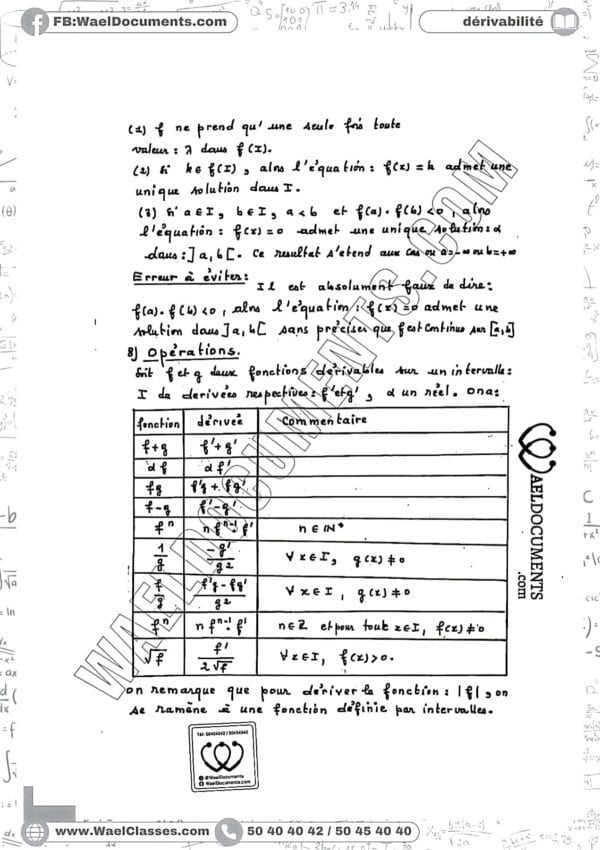 FB:WaelDocuments.com
dérivabilité
(1) f ne prend qu'une seule fois toute
valeur : λ dans f(I).
(2) Si k∈f(I), alors l'équation : f(x)=k admet une
unique solution dans I.
(3) Si a∈I, b∈I, a<b et f(a).f(b)<0, alors
l'équation : f(x)=0 admet une unique solution : α
dans : ]a,b[. Ce resultat s'etend aux cas ou a=-∞ ou b=+∞
Erreur à éviter :
Il est absolument faux de dire :
f(a).f(b)<0, alors l'équation : f(x)=0 admet une
solution dans ]a,b[ sans préciser que f est continue sur [a,b]
8) Opérations.
Soit f et g deux fonctions dérivables sur un intervalle :
I de derivées respectives : f' et g', α un réel. on a :
fonction dérivée Commentaire
f+g f'+g'
αf αf'
fg f'g + fg'
f-g f'-g'
fⁿ n fⁿ⁻¹ f' n∈IN*
1/g -g'/g² ∀x∈I, g(x)≠0
f/g f'g-fg'/g² ∀x∈I, g(x)≠0
fⁿ n fⁿ⁻¹ f' n∈Z et pour tout x∈I, f(x)≠0
√f f'/2√f ∀x∈I, f(x)>0.
on remarque que pour dériver la fonction : |f|, on
se ramène à une fonction définie par intervalles.
WAELDOCUMENTS.COM
WAELDOCUMENTS
.com
Tél: 50404042 / 50454040
WaelDocuments
WaelDocuments.com
www.WaelClasses.com
50 40 40 42 / 50 45 40 40